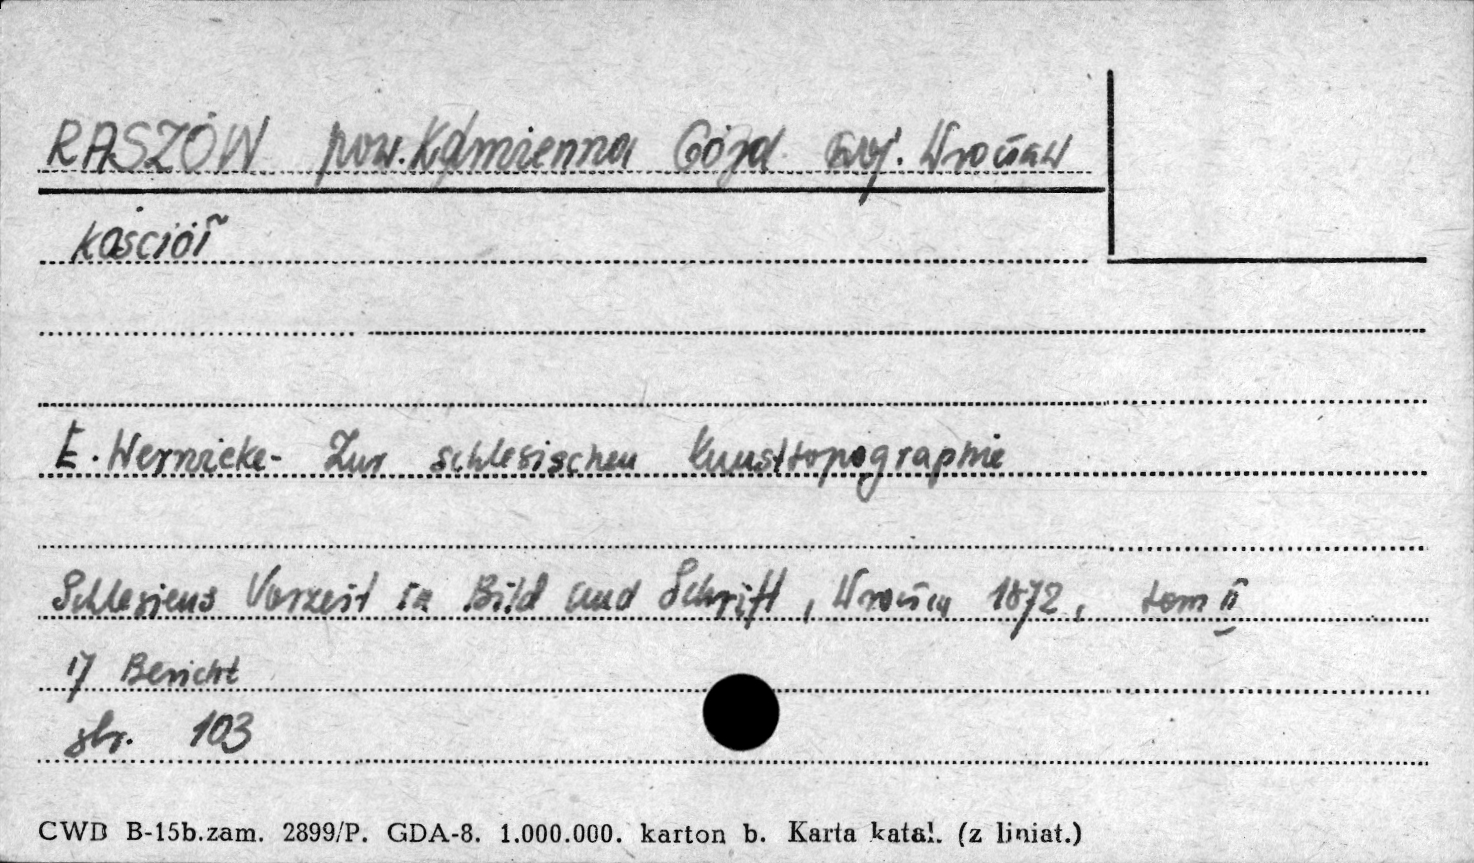 RASZÓW pow. Kamienna Góra woj. Wrocław
kościół
E. Wernicke - Zur schlesischen Kunsttopographie
Schlesiens Vorzeit in Bild und Schrift, Wrocław 1872, tom II
17 Bericht
str. 103
CWD B-15b.zam. 2899/P. GDA-8. 1.000.000. karton b. Karta katal. (z liniat.)